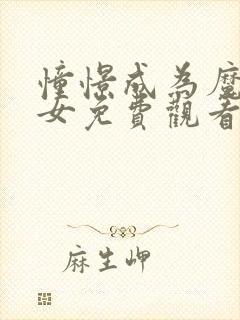 憧憬成為魔
女免費觀看
麻生岬